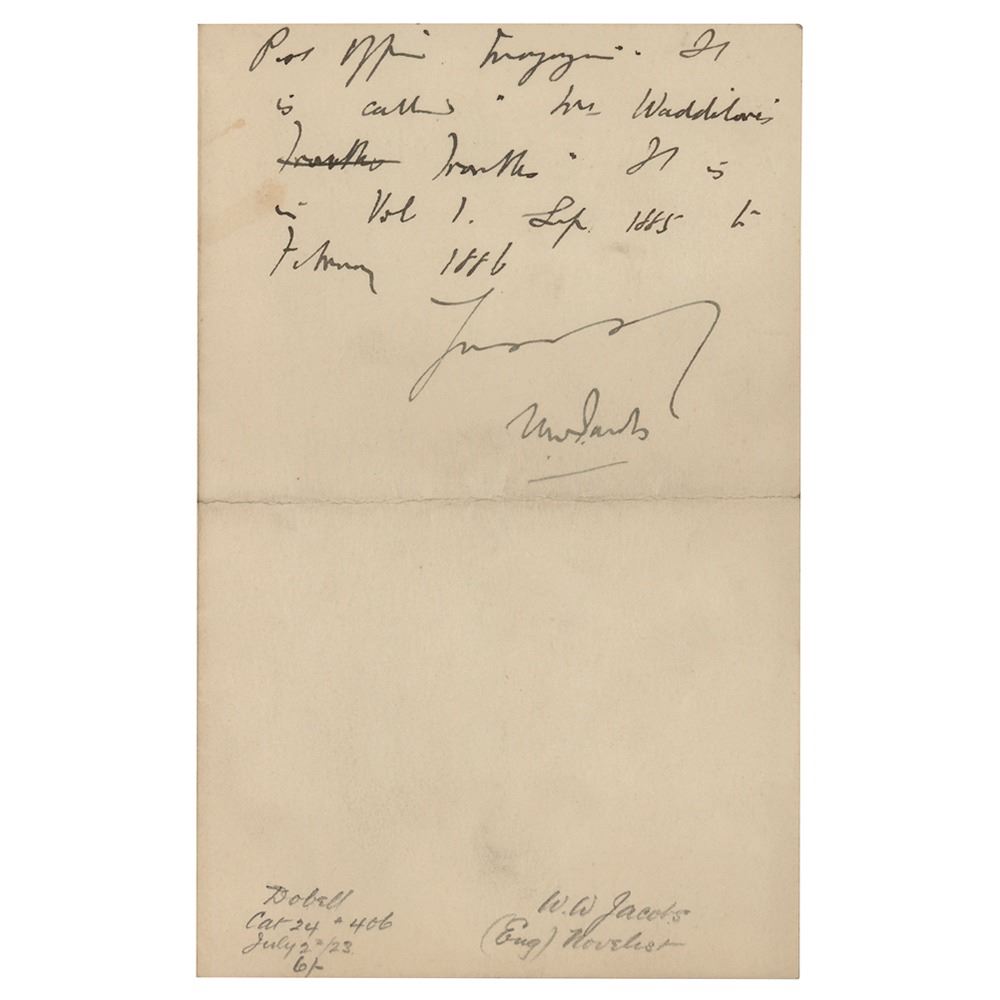 Post Office Magazine". It
is called " Mrs Waddilove's
Troubles Troubles" It is
in Vol 1. Sep. 1885 to
February 1886
Yours
WW Jacobs
Dobell
Cat 24 # 406
July 2nd/23
6/-
W.W Jacobs
(Eng) Novelist